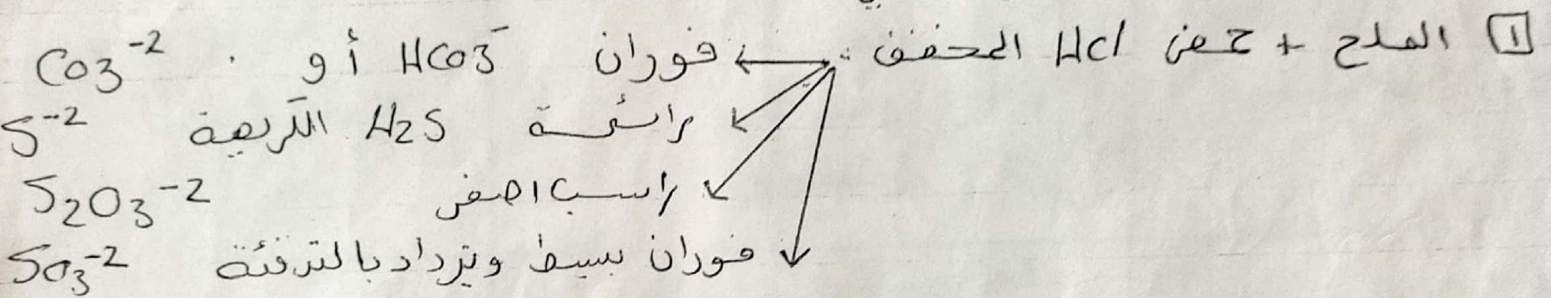 1 الملح + حمض HCl المخفف : فوران HCO3- أو CO3-2
رائحة H2S الكريهة S-2
راسب اصفر S2O3-2
فوران بسيط ويزداد بالتدفئة SO3-2